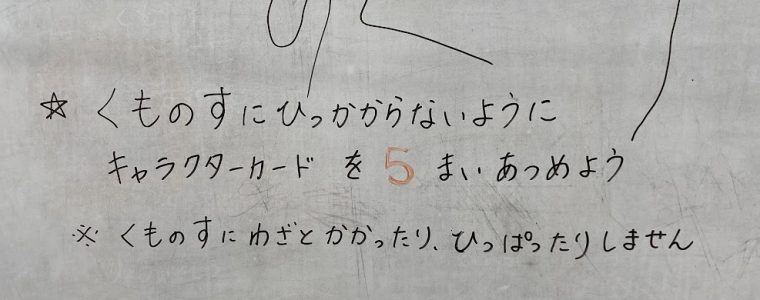 ☆ くものすにひっかからないように
キャラクターカード を 5 まい あつめよう
※ くものすに わざと かかったり、ひっぱったりしません